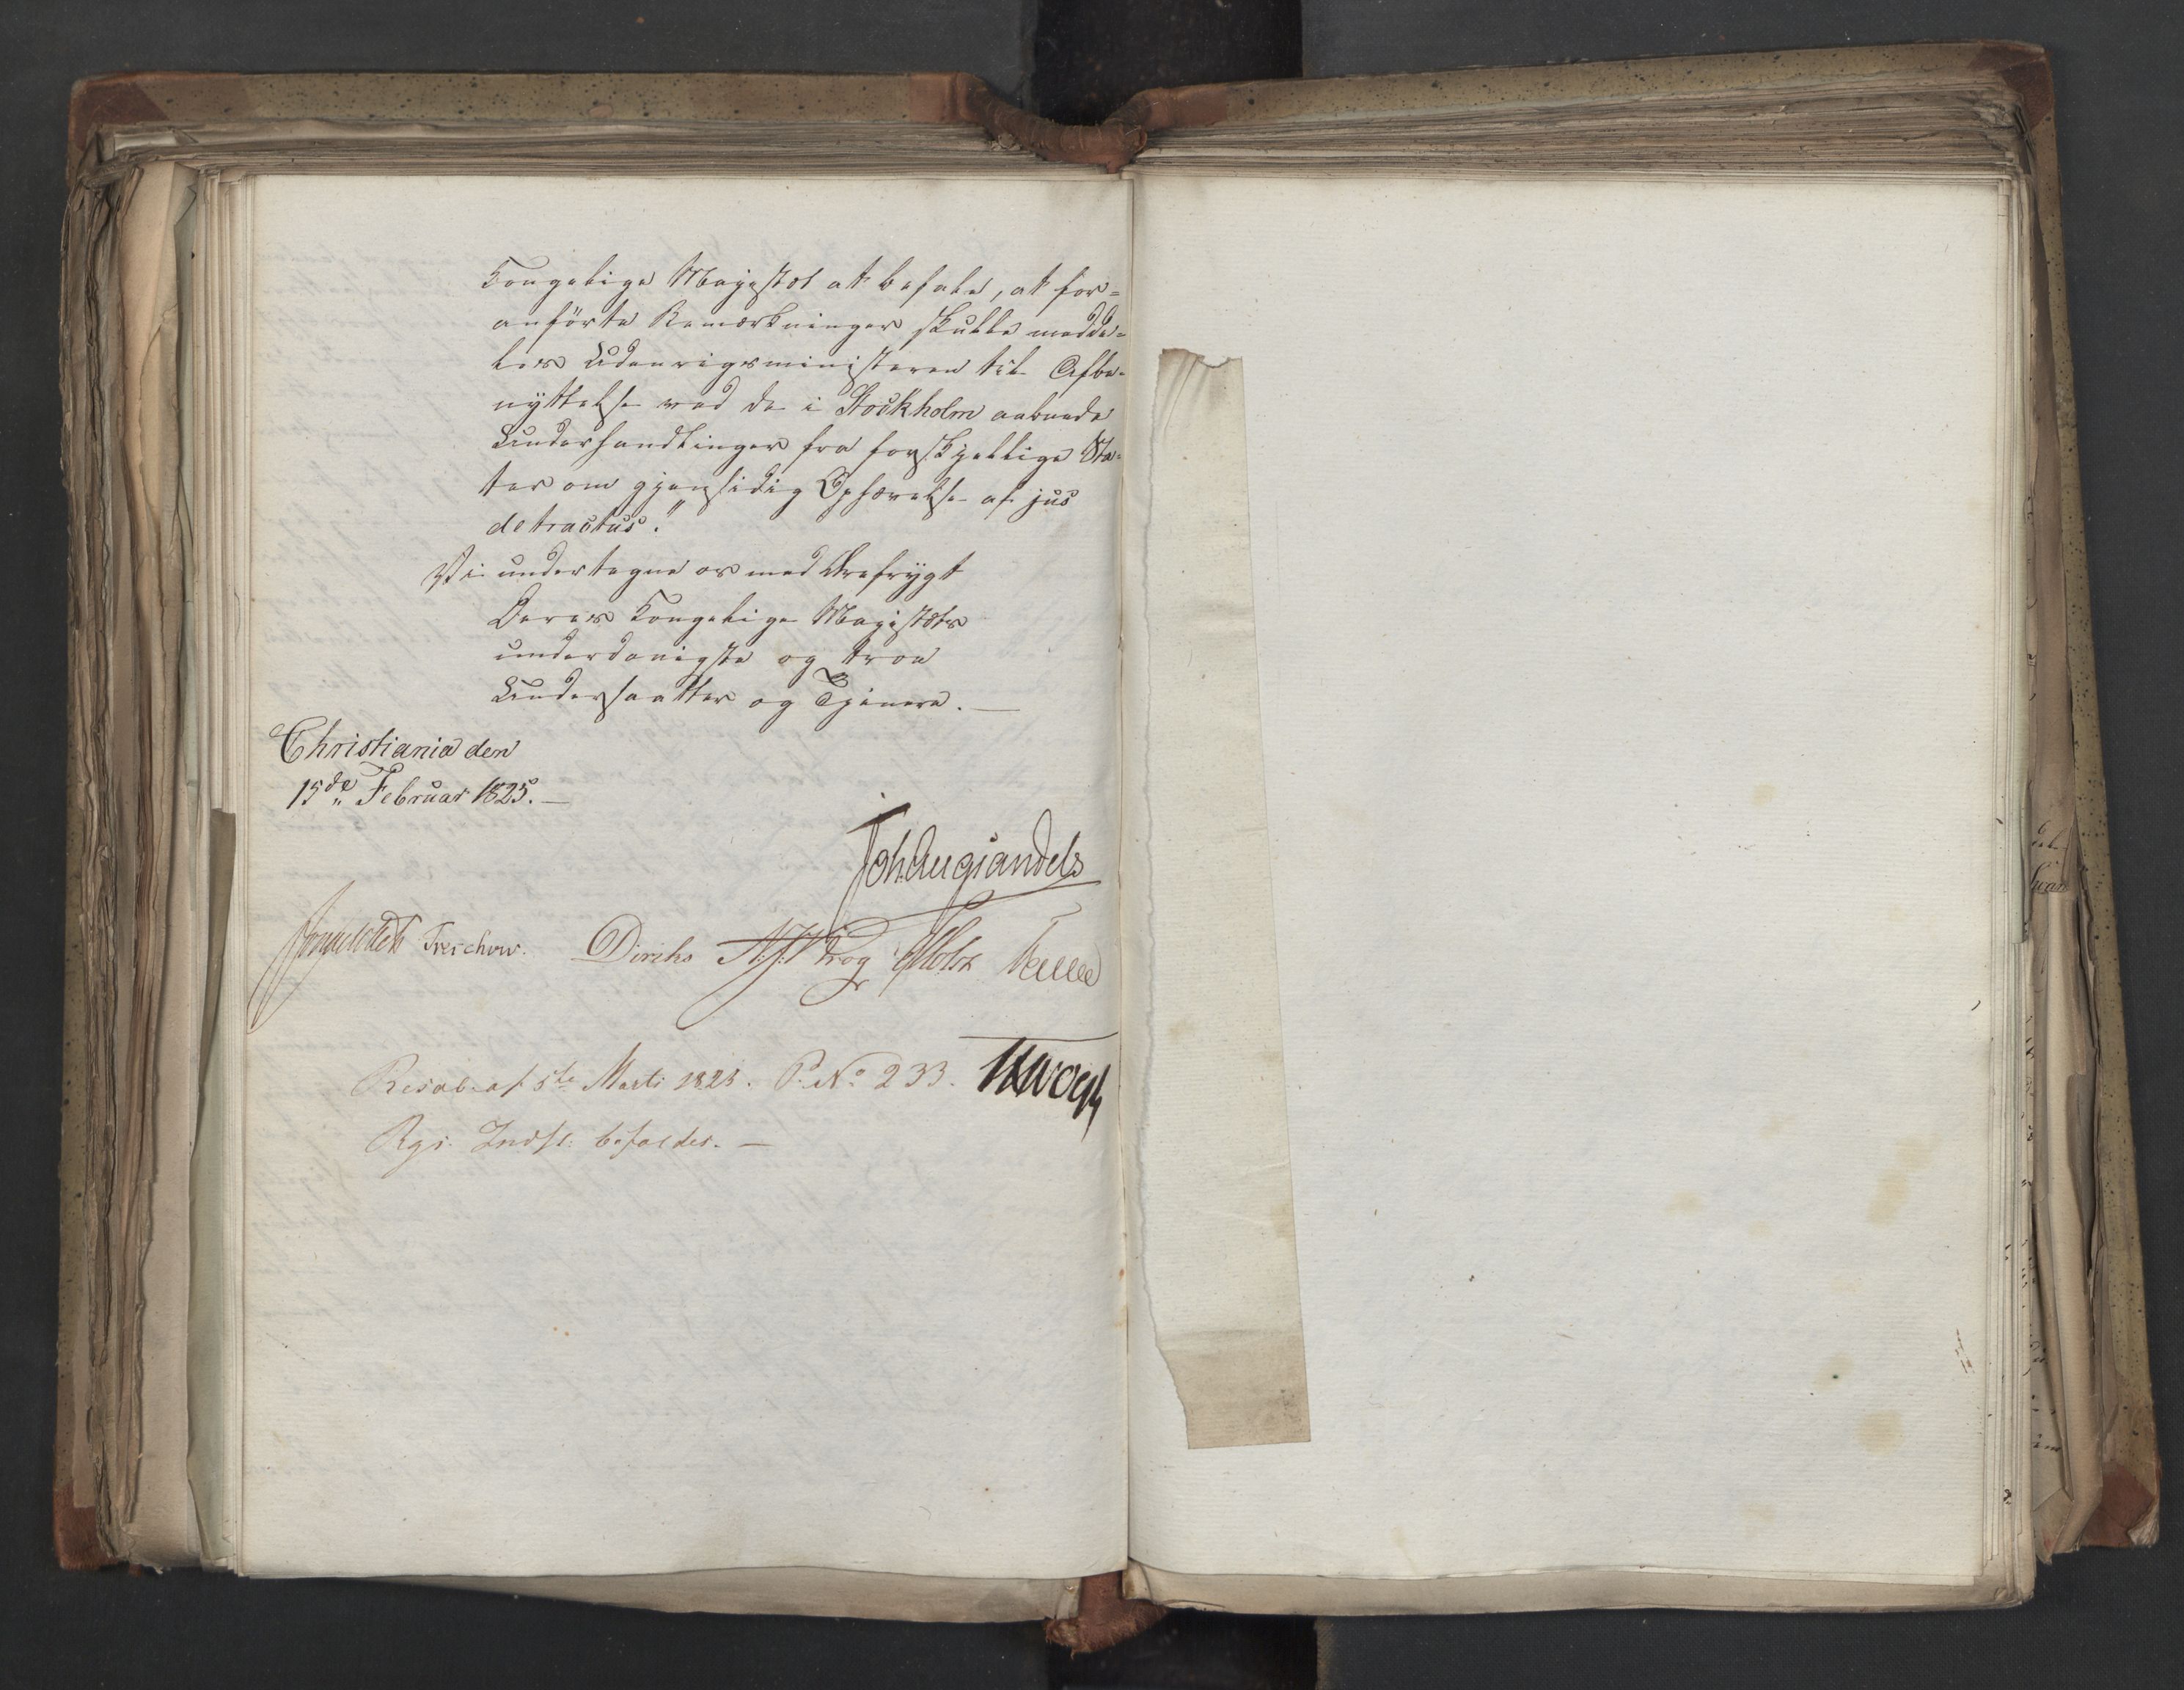 Kongelige Majestæt at befale, at for=
anförte Bemærkninger skulle medde=
les Udenrigsministeren til Afbe-
nyttelse ved de i Stockholm aabnede
Underhandlinger fra forskjellige Sta=
ter om gjensidig Ophævelse af jus
detractus."
Vi undertegne os med Ærefrygt
Deres Kongelige Majestæts
underdanigste og troe
Undersaatter og Tjenere. —
Christiania den
15de Februar 1825. —
Joh Aug Sandels
Sommerhielm Treschow. Diriks N. J. Krog Motzfeldt
Resol: af 5te Marti 1825. P. No 233.
Rgs. Indst: bifaldes. —